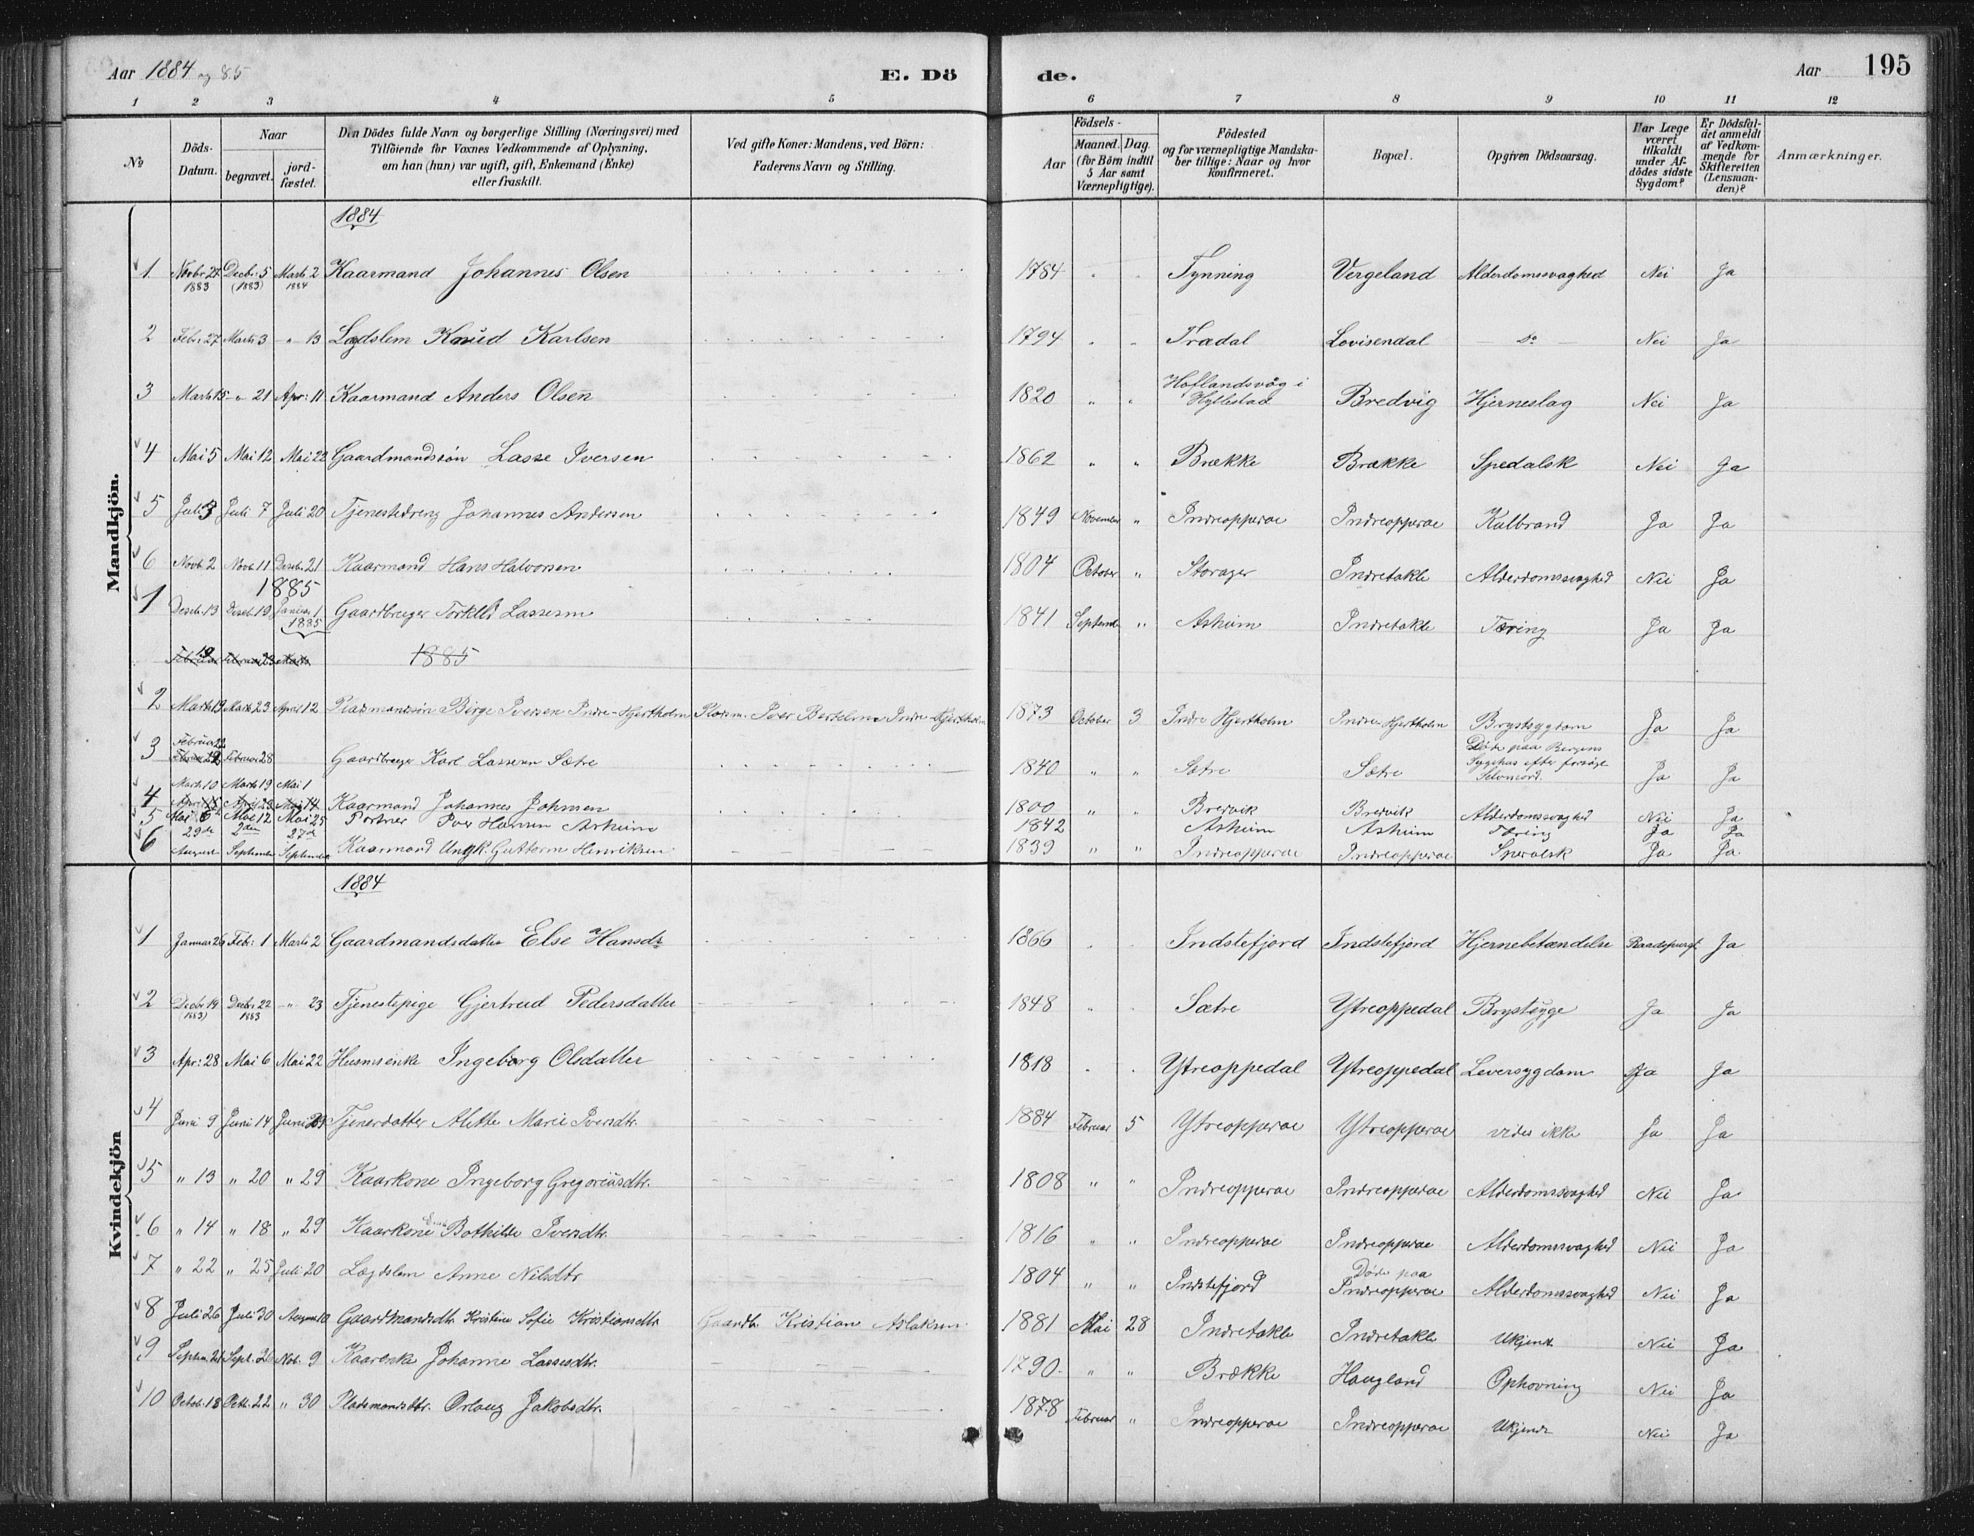 Aar 1884 og 85 E. Dö de. Aar 195
1 2 3 4 5 6 7 8 9 10 11 12
No Döds-Datum. Naar begravet. jordfæstet. Den Dödes fulde Navn og borgerlige Stilling (Næringsvei) med Tilföiende for Voxnes Vedkommende af Oplysning, om han (hun) var ugift, gift, Enkemand (Enke) eller fraskilt. Ved gifte Koner: Mandens, ved Börn: Faderens Navn og Stilling. Födsels- Aar Maaned. Dag. (for Börn indtil 5 Aar samt Værnepligtige). Födested og for værnepligtige Mandskaber tillige: Naar og hvor Konfirmeret. Bopæl. Opgiven Dödsaarsag. Har Læge været tilkaldt under Afdödes sidste Sygdom? Er Dödsfaldet anmeldt af Vedkommende for Skifteretten (Lensmanden)? Anmærkninger.
Mandkjön.
1884
1 Novbr 27 1883 Decbr: 5 (1883) Marts 2 1884 Kaarmand Johannes Olsen 1784 " " Tynning Vergeland Alderdomssvaghed Nei Ja
2 Febr 27 Marts 3 " 13 Lægdslem Knud Karlsen 1794 " " Tradal Lovisendal do Nei Ja
3 Marts 15 " 21 Apr: 11 Kaarmand Anders Olsen 1820 " " Hoflandsvåg i Hyllestad Bredvig Hjerneslag Nei Ja
4 Mai 5 Mai 12 Mai 22 Gaardmandssøn Lasse Iversen 1862 " " Brække Brække Spedalsk Nei Ja
5 Juli 3 Juli 7 Juli 20 Tjenestedreng Johannes Andersen 1849 November " Indreopperae Indreopperae Kulbrand Ja Ja
6 Novb. 2 Novb. 11 Deceb. 21 Kaarmand Hans Halvorsen 1804 October " Storager Indretakle Alderdomssvaghed Nei Ja
1885
1 Deceb. 13 Deceb. 19 Januar 1 1885 Gaardbruger Torkild Lassesen 1841 Septembr " Askum Indretakle Tæring Ja Ja
Februar 19 Februar 23 Marts 1885
2 Marts 19 Marts 23 April 12 Pladsmandssøn Børge Iversen Indre-Hjertholm Pladsm. Iver Bertelsen Indre-Hjertholm 1873 October 3 Indre Hjertholm Indre Hjertholm Brystsygdom Ja Ja
3 Februar 22 Februar 28 Gaardbruger Karl Lassesen Sætre 1840 " " Sætre Sætre Døde paa Bergens Sygehus efter forsøgt Selvmord. Ja Ja
4 Marts 10 Marts 19 Mai 1 Kaarmand Johannes Johnsen 1800 " " Bredvik Bredvik Alderdomssvaghed Nei Ja
5 Mai 6 Mai 12 Mai 25 Portner Iver Hansen Askum 1842 Askum Askum Tæring Ja Ja
6 29de August 2den September 27de September Kaarmand Ungk. Guttorm Henriksen 1839 " " Indreopperae Indreopperae Spedalsk Ja Ja
Kvindekjön
1884
1 Januar 26 Feb: 1 Marts 2 Gaardmandsdatter Else Hansdtr 1866 " " Indstefjord Indstefjord Hjernebetændelse Raadspurgt Ja
2 Decbr 14 (1883) Decbr 22 1883 " 23 Tjenestepige Gjertrud Pedersdatter 1848 " Sætre Ytreoppedal Brystsyge Ja Ja
3 Apr: 28 Mai 6 Mai 22 Husmsenke Ingeborg Olsdatter 1818 " " Ytreoppedal Ytreoppedal Leversygdom Ja Ja
4 Juni 9 Juni 14 Juni Tjenerdatter Alette Marie Iversdtr. 1884 Februar 5 Ytreopperae Ytreopperae vides ikke Ja Ja
5 " 13 " 20 " 29 Kaarkone Ingeborg Gregoriusdtr. 1808 " " Indreopperae Indreopperae Alderdomssvaghed Nei Ja
6 " 14 " 18 " 29 Kaarkone Bothilde Iversdtr. 1816 " " Indreopperae Indreopperae Alderdomssvaghed Nei Ja
7 " 22 " 25 Juli 20 Lægdslem Anne Nilsdtr 1804 " " Indstefjord Døde paa Indreopperae Alderdomssvaghed Nei Ja
8 Juli 26 Juli 30 August 10 Gaardmandsdtr Kristine Sofie Kristiansdtr Gaardbr Kristian Aslaksen 1881 Mai 28 Indretakle Indretakle Ukjendt Nei Ja
9 Septem. 21 Sept. 26 Nob. 9 Kaarenke Johanne Lassesdtr. 1790 " " Brække Haugland Ophovning Nei Ja
10 Octob. 18 Octb. 22 " 30 Pladsmandsdtr. Orlaug Jakobsdtr. 1878 Februar " Indreopperae Indreopperae Ukjendt Nei Ja